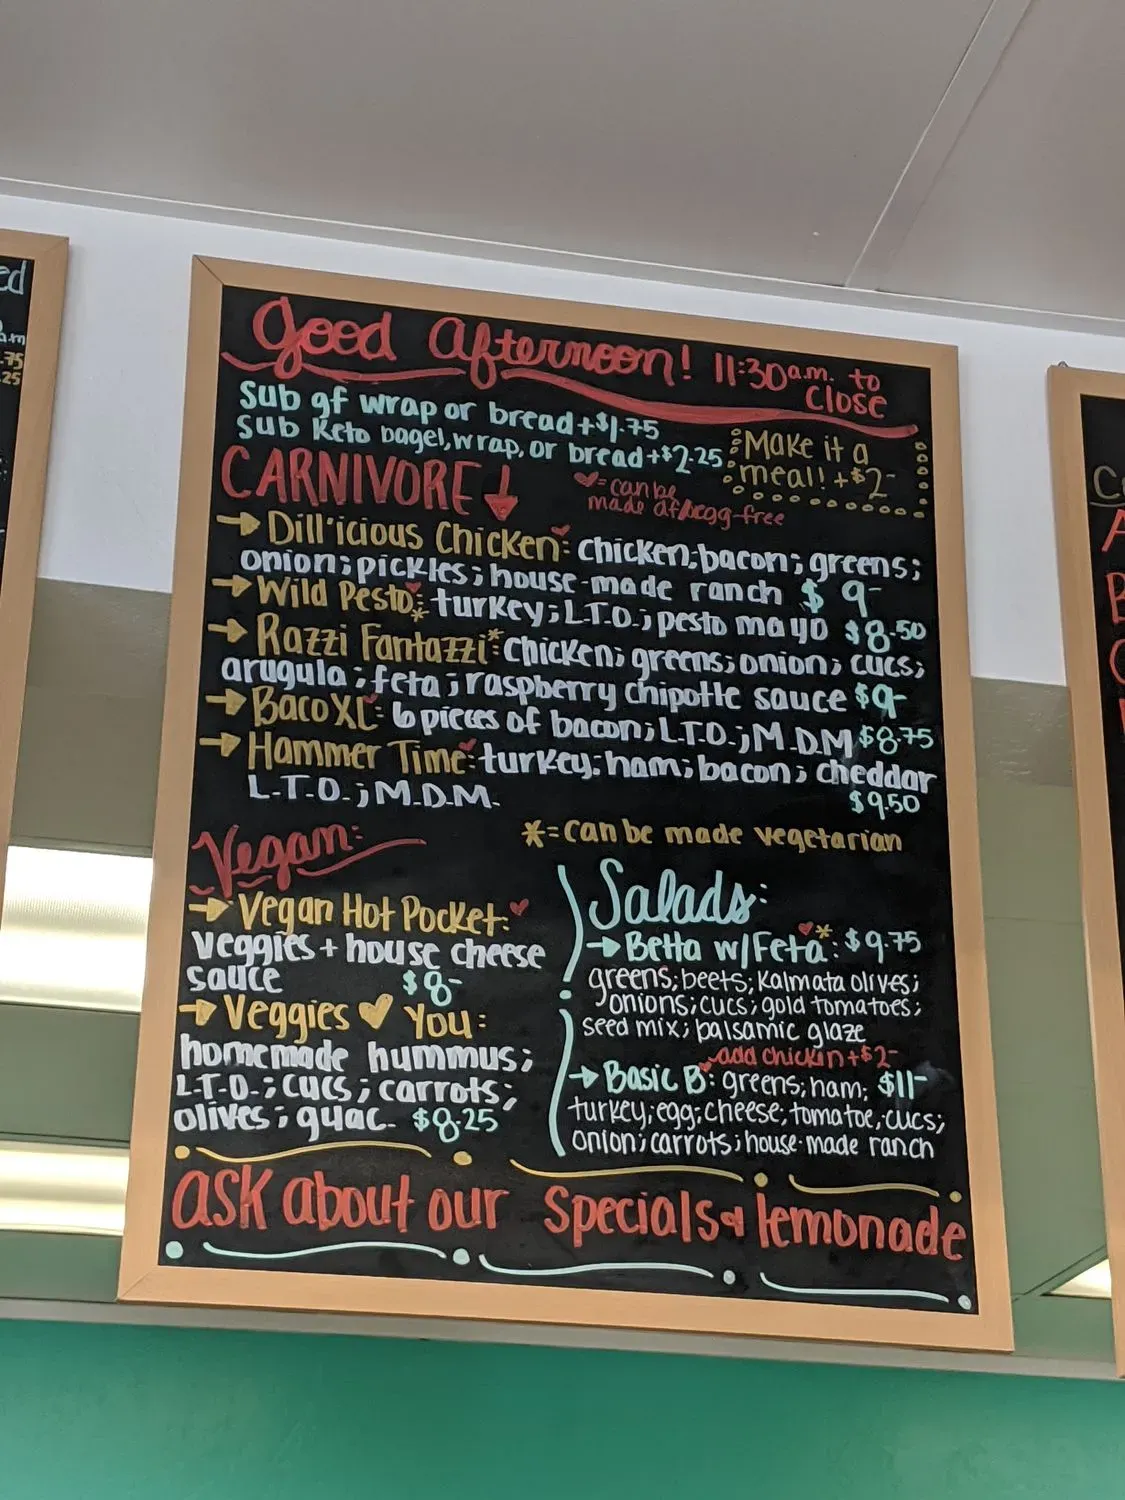 Good Afternoon! 11:30 a.m. to close
Sub gf wrap or bread +$1.75
Sub Keto bagel, wrap, or bread +$2.25
Make it a
meal! +$2-
CARNIVORE
♥ = can be
made df/egg-free
→ Dill'icious Chicken♥: chicken; bacon; greens;
onion; pickles; house-made ranch $9-
→ Wild Pesto♥*: turkey; L.T.O.; pesto mayo $8.50
→ Razzi Fantazzi*: chicken; greens; onion; cucs;
arugula; feta; raspberry chipotle sauce $9-
→ Baco XL♥: 6 pieces of bacon; L.T.O.; M.D.M $8.75
→ Hammer Time♥: turkey; ham; bacon; cheddar
L.T.O.; M.D.M. $9.50
* = can be made vegetarian
Vegan:
→ Vegan Hot Pocket:♥
veggies + house cheese
sauce $8-
→ Veggies ♥ You:
homemade hummus;
L.T.O.; cucs; carrots;
olives; guac. $8.25
Salads:
→ Betta w/Feta♥*: $9.75
greens; beets; Kalmata olives;
onions; cucs; gold tomatoes;
seed mix; balsamic glaze
add chicken +$2-
→ Basic B♥: greens; ham; $11-
turkey; egg; cheese; tomatoe; cucs;
onion; carrots; house-made ranch
ASK about our Specials & lemonade
ed
.75
.25